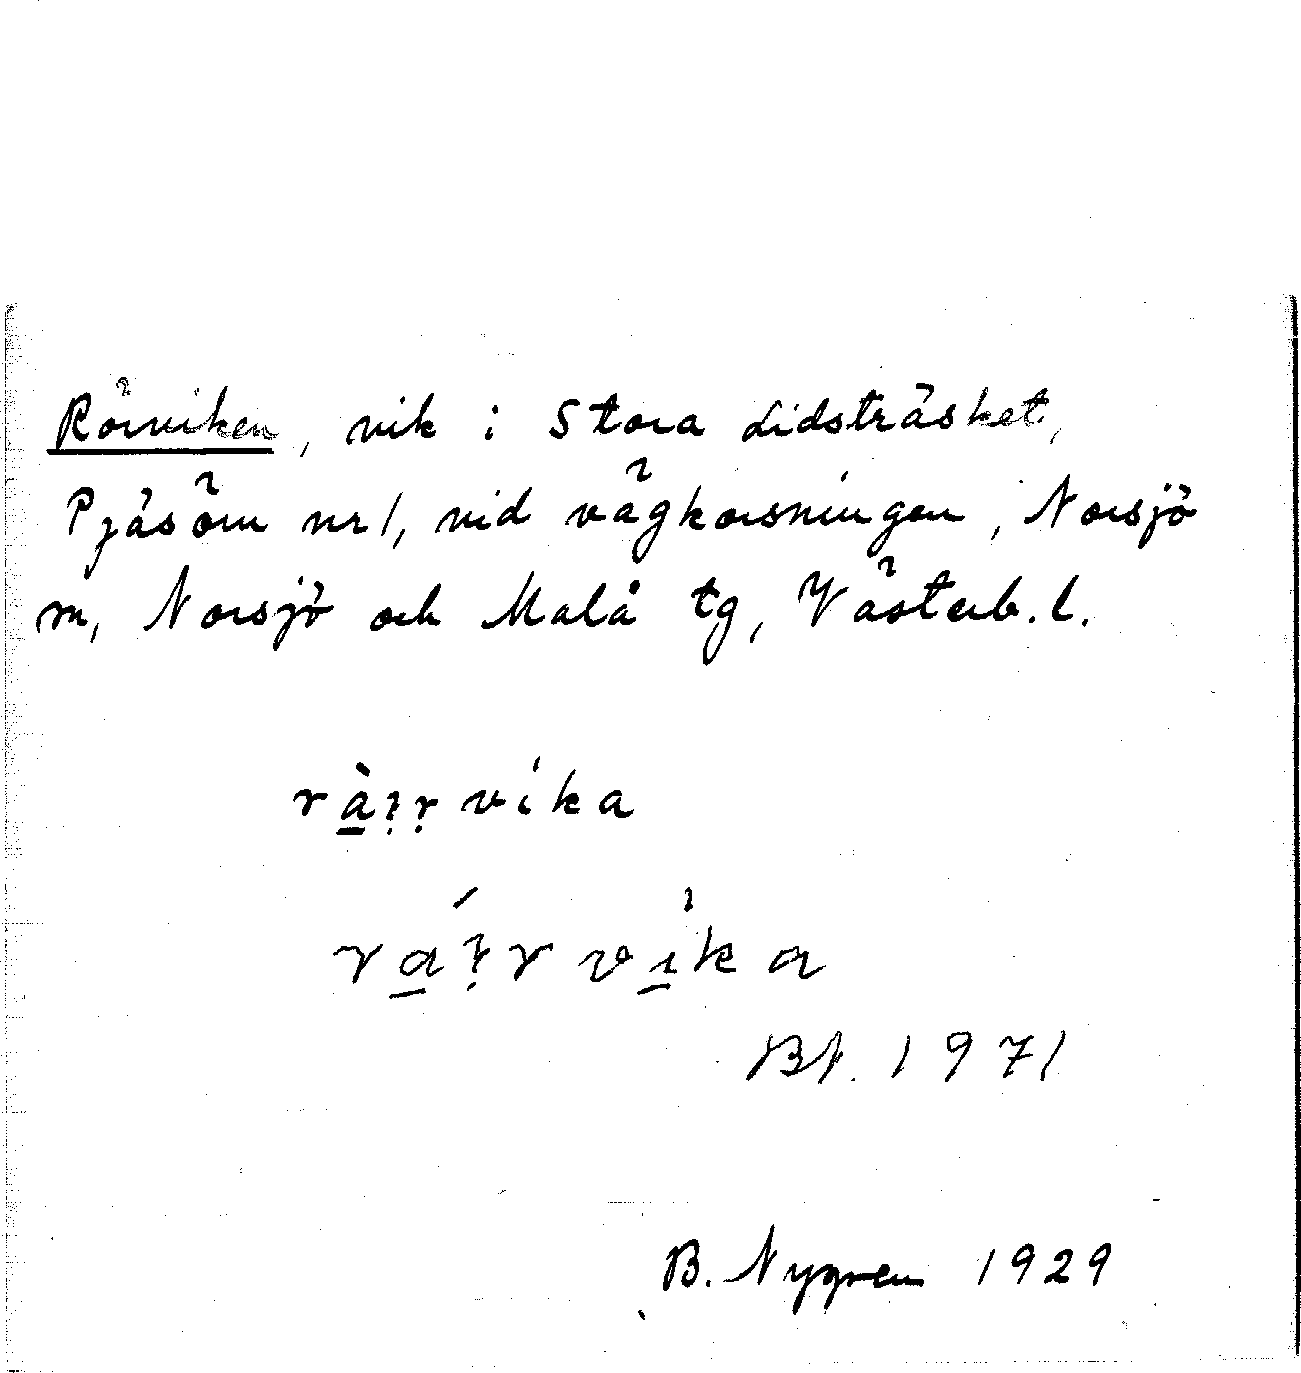 Rörviken, vik i Stora Lidsträsket,
Pjäsörn nr 1, vid vägkorsningen, Norsjö
m, Norsjö och Malå tg, Västerb. l.
vika
vika
1971
B. Nygren 1929